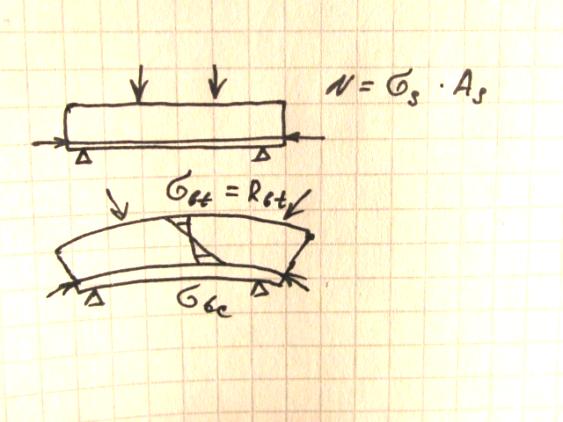 N = σs · As
σbt = Rbt
σbc